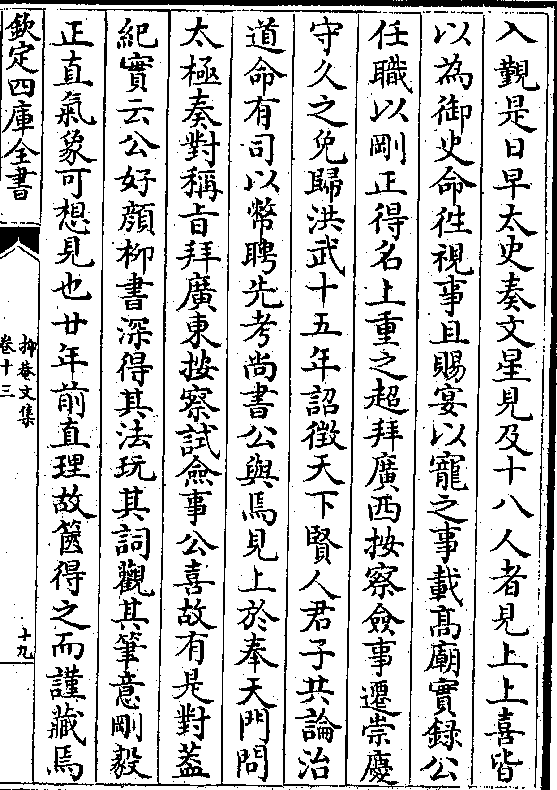 入觀是日早太史奏文星見及十八人者見上上喜皆
以為御史命徃視事且賜宴以寵之事載髙廟實録公
任職以剛正得名上重之超拜廣西按察僉事遷崇慶
守久之免歸洪武十五年詔徴天下賢人君子共論治
道命有司以幣聘先考尚書公與焉見上於奉天門問
太極奏對稱㫖拜廣東按察試僉事公喜故有是對葢
紀實云公好顔柳書深得其法玩其詞觀其筆意剛毅
正直氣象可想見也廿年前直理故篋得之而謹藏焉
欽定四庫全書
抑菴文集
卷十三
十九